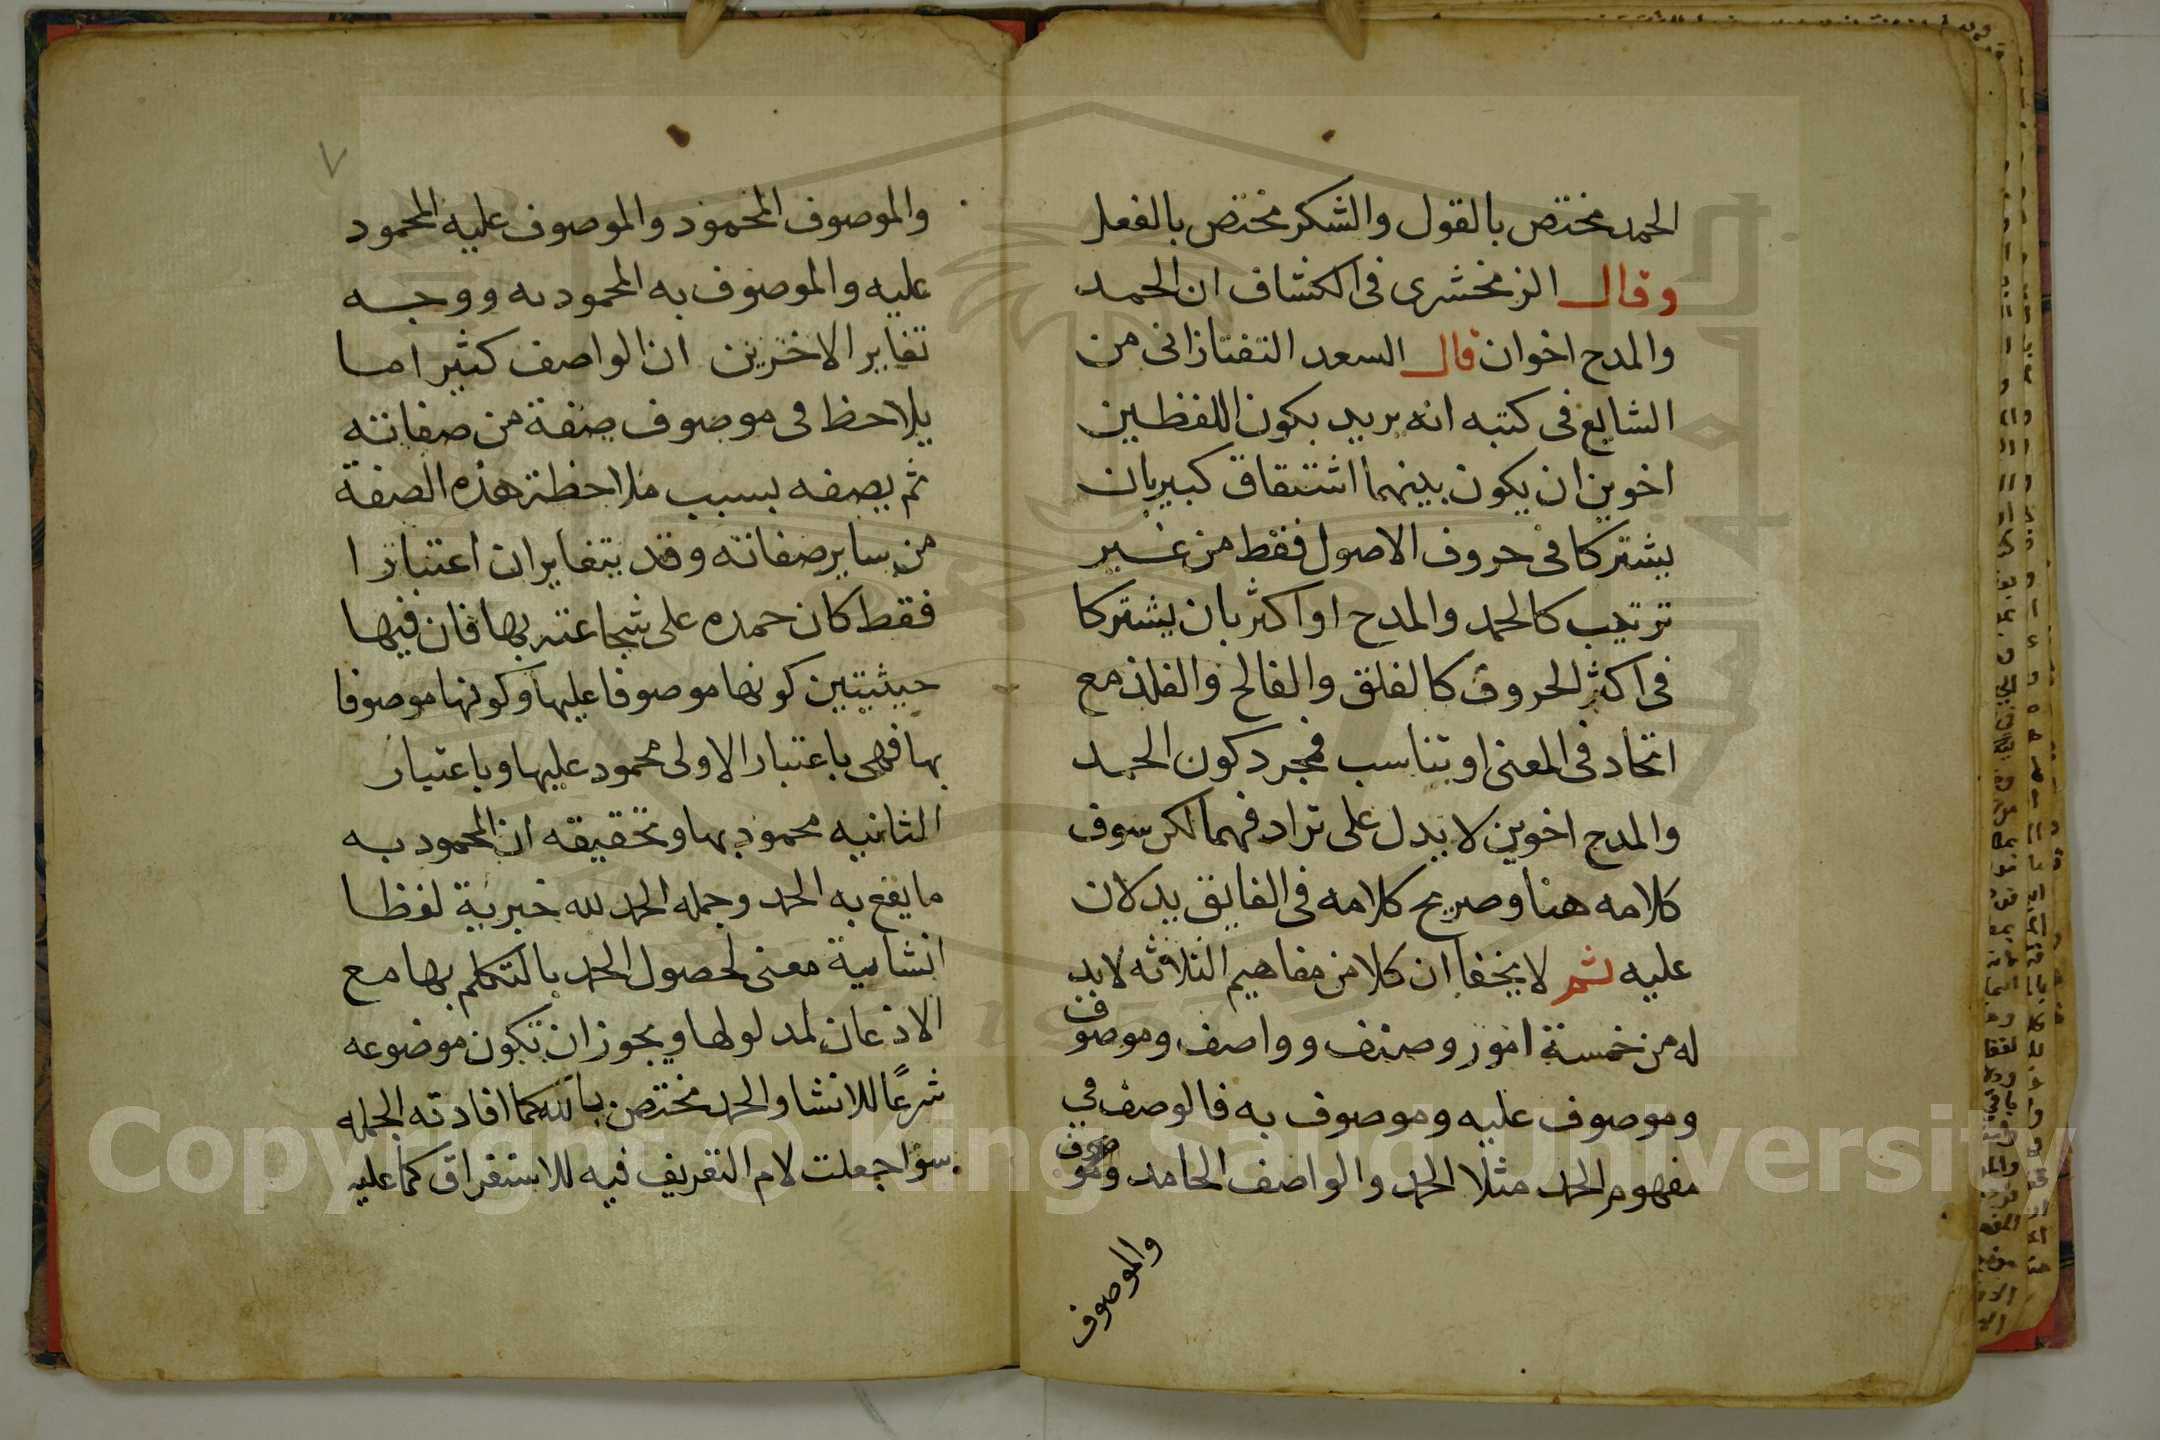 الحمد مختص بالقول والشكر مختص بالفعل
وقال الزمخشرى فى الكشاف ان الحمد
والمدح اخوان قال السعد التفتازانى من
الشايع فى كتبه انه يريد بكون اللفظين
اخوين ان يكون بينهما اشتقاق كبير بان
يشتركا فى حروف الاصول فقط من غير
ترتيب كالحمد والمدح او اكثر بان يشتركا
فى اكثر الحروف كالفلق والفالح والفلذ مع
اتحاد فى المعنى او تناسب فمجرد كون الحمد
والمدح اخوين لا يدل على ترادفهما لكن سوف
كلامه هنا وصريح كلامه فى الفايق يدلان
عليه ثم لا يخفا ان كلا من مفاهيم الثلاثه لابد
له من خمسة امور وصف وواصف وموصوف
وموصوف عليه وموصوف به فالوصف في
مفهوم الحمد مثلا الحمد والواصف الحامد وموصوف
والموصوف
٧
والموصوف المحمود والموصوف عليه المحمود
عليه والموصوف به المحمود به ووجه
تغاير الاخرين ان الواصف كثير اما
يلاحظ فى موصوف صفة من صفاته
ثم يصفه بسبب ملاحظة هذه الصفة
من ساير صفاته وقد يتغايران اعتبارا
فقط كان حمده على شجاعته بها فان فيها
حيثيتين كونها موصوفا عليها وكونها موصوفا
بها فهى باعتبار الاولى محمود عليها وباعتبار
الثانيه محمود بها وتحقيقه ان المحمود به
ما يقع به الحمد وجمله الحمد لله خبرية لفظا
انشايية معنى لحصول الحمد بالتكلم بها مع
الاذعان لمدلولها ويجوز ان تكون موضوعه
شرعًا للانشا والحمد مختص بالله كما افادته الجمله
سوا جعلت لام التعريف فيه للاستغراق كما عليه
Copyright © King Saud University